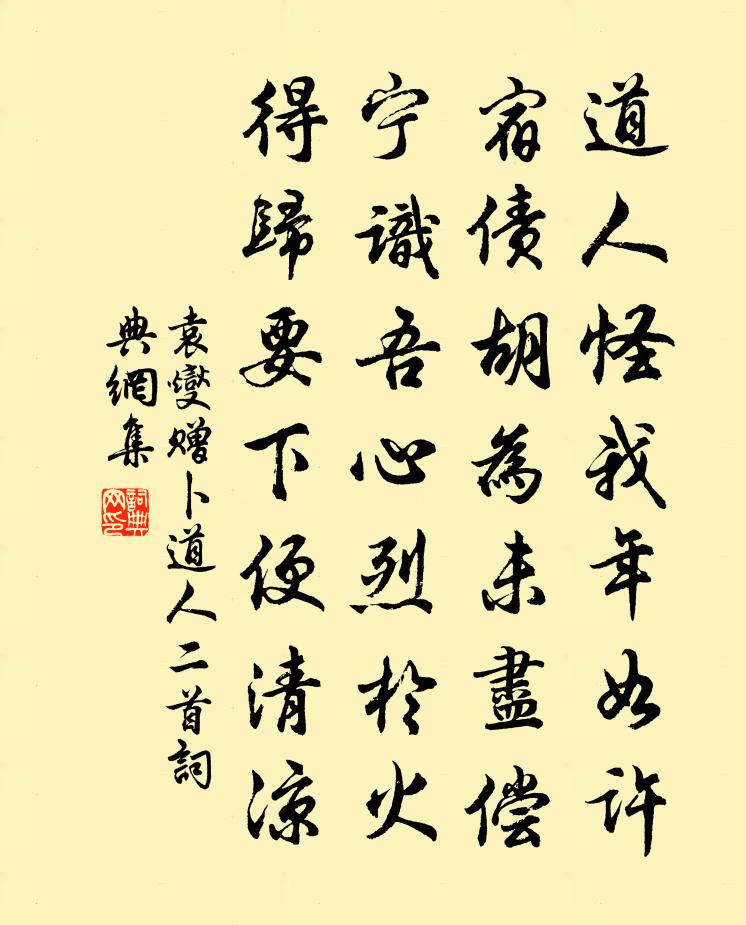 道人怪我年如许
宿债胡為未盡偿
宁識吾心烈於火
得歸要下便清凉
袁燮赠卜道人二首詞
典網集
詞典网印